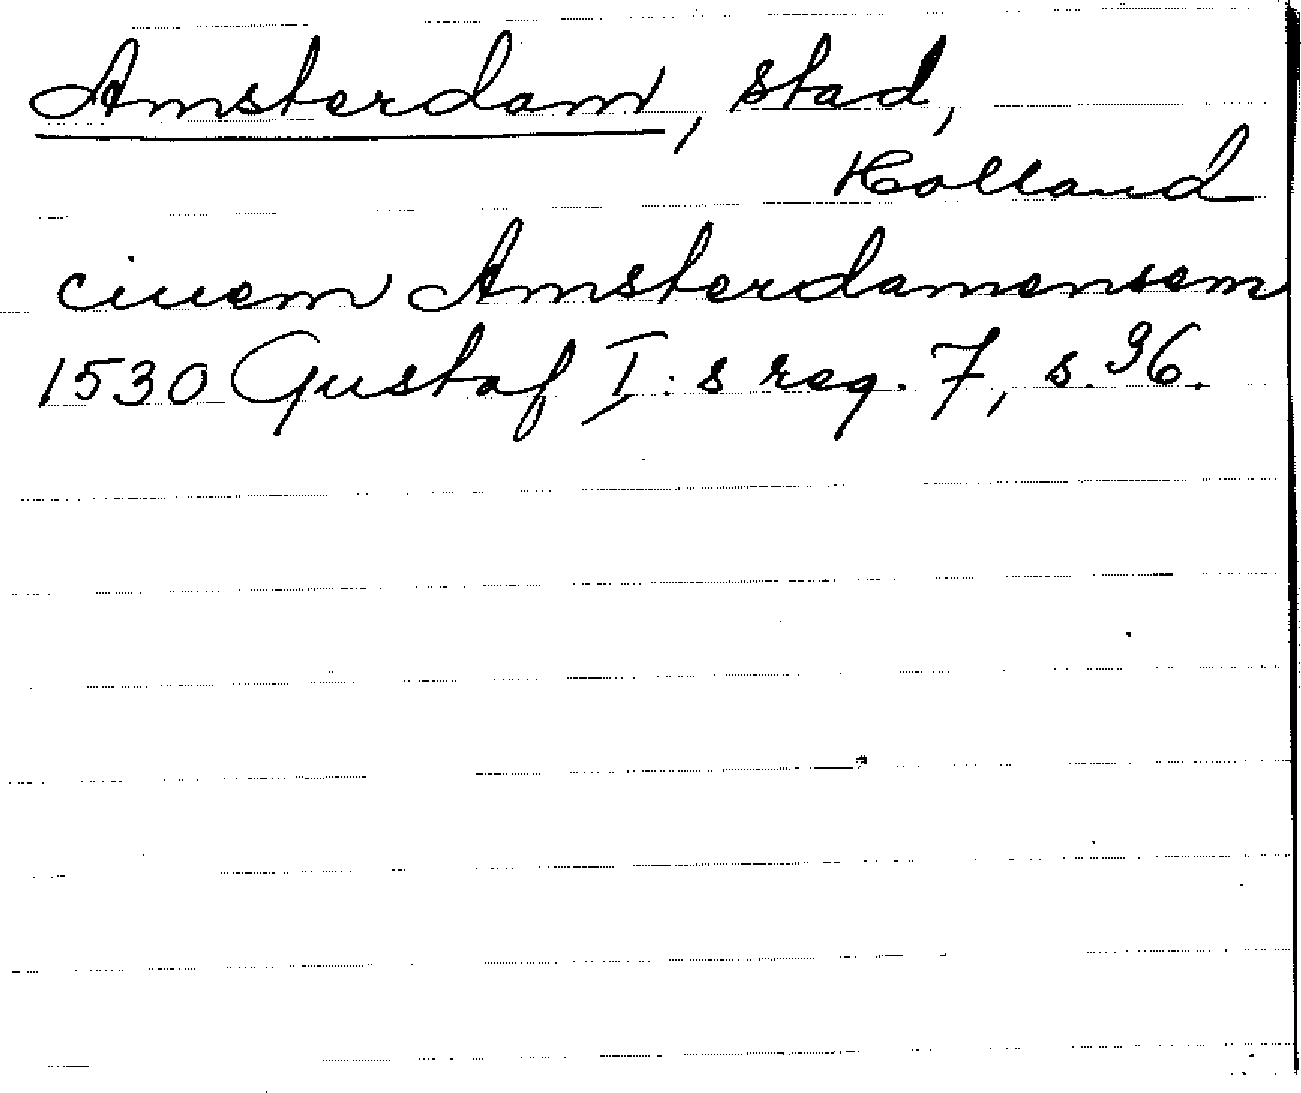 Amsterdam, stad,
Holland
ciuem Amsterdamensem
1530 Gustaf I:s reg. 7, s. 96.